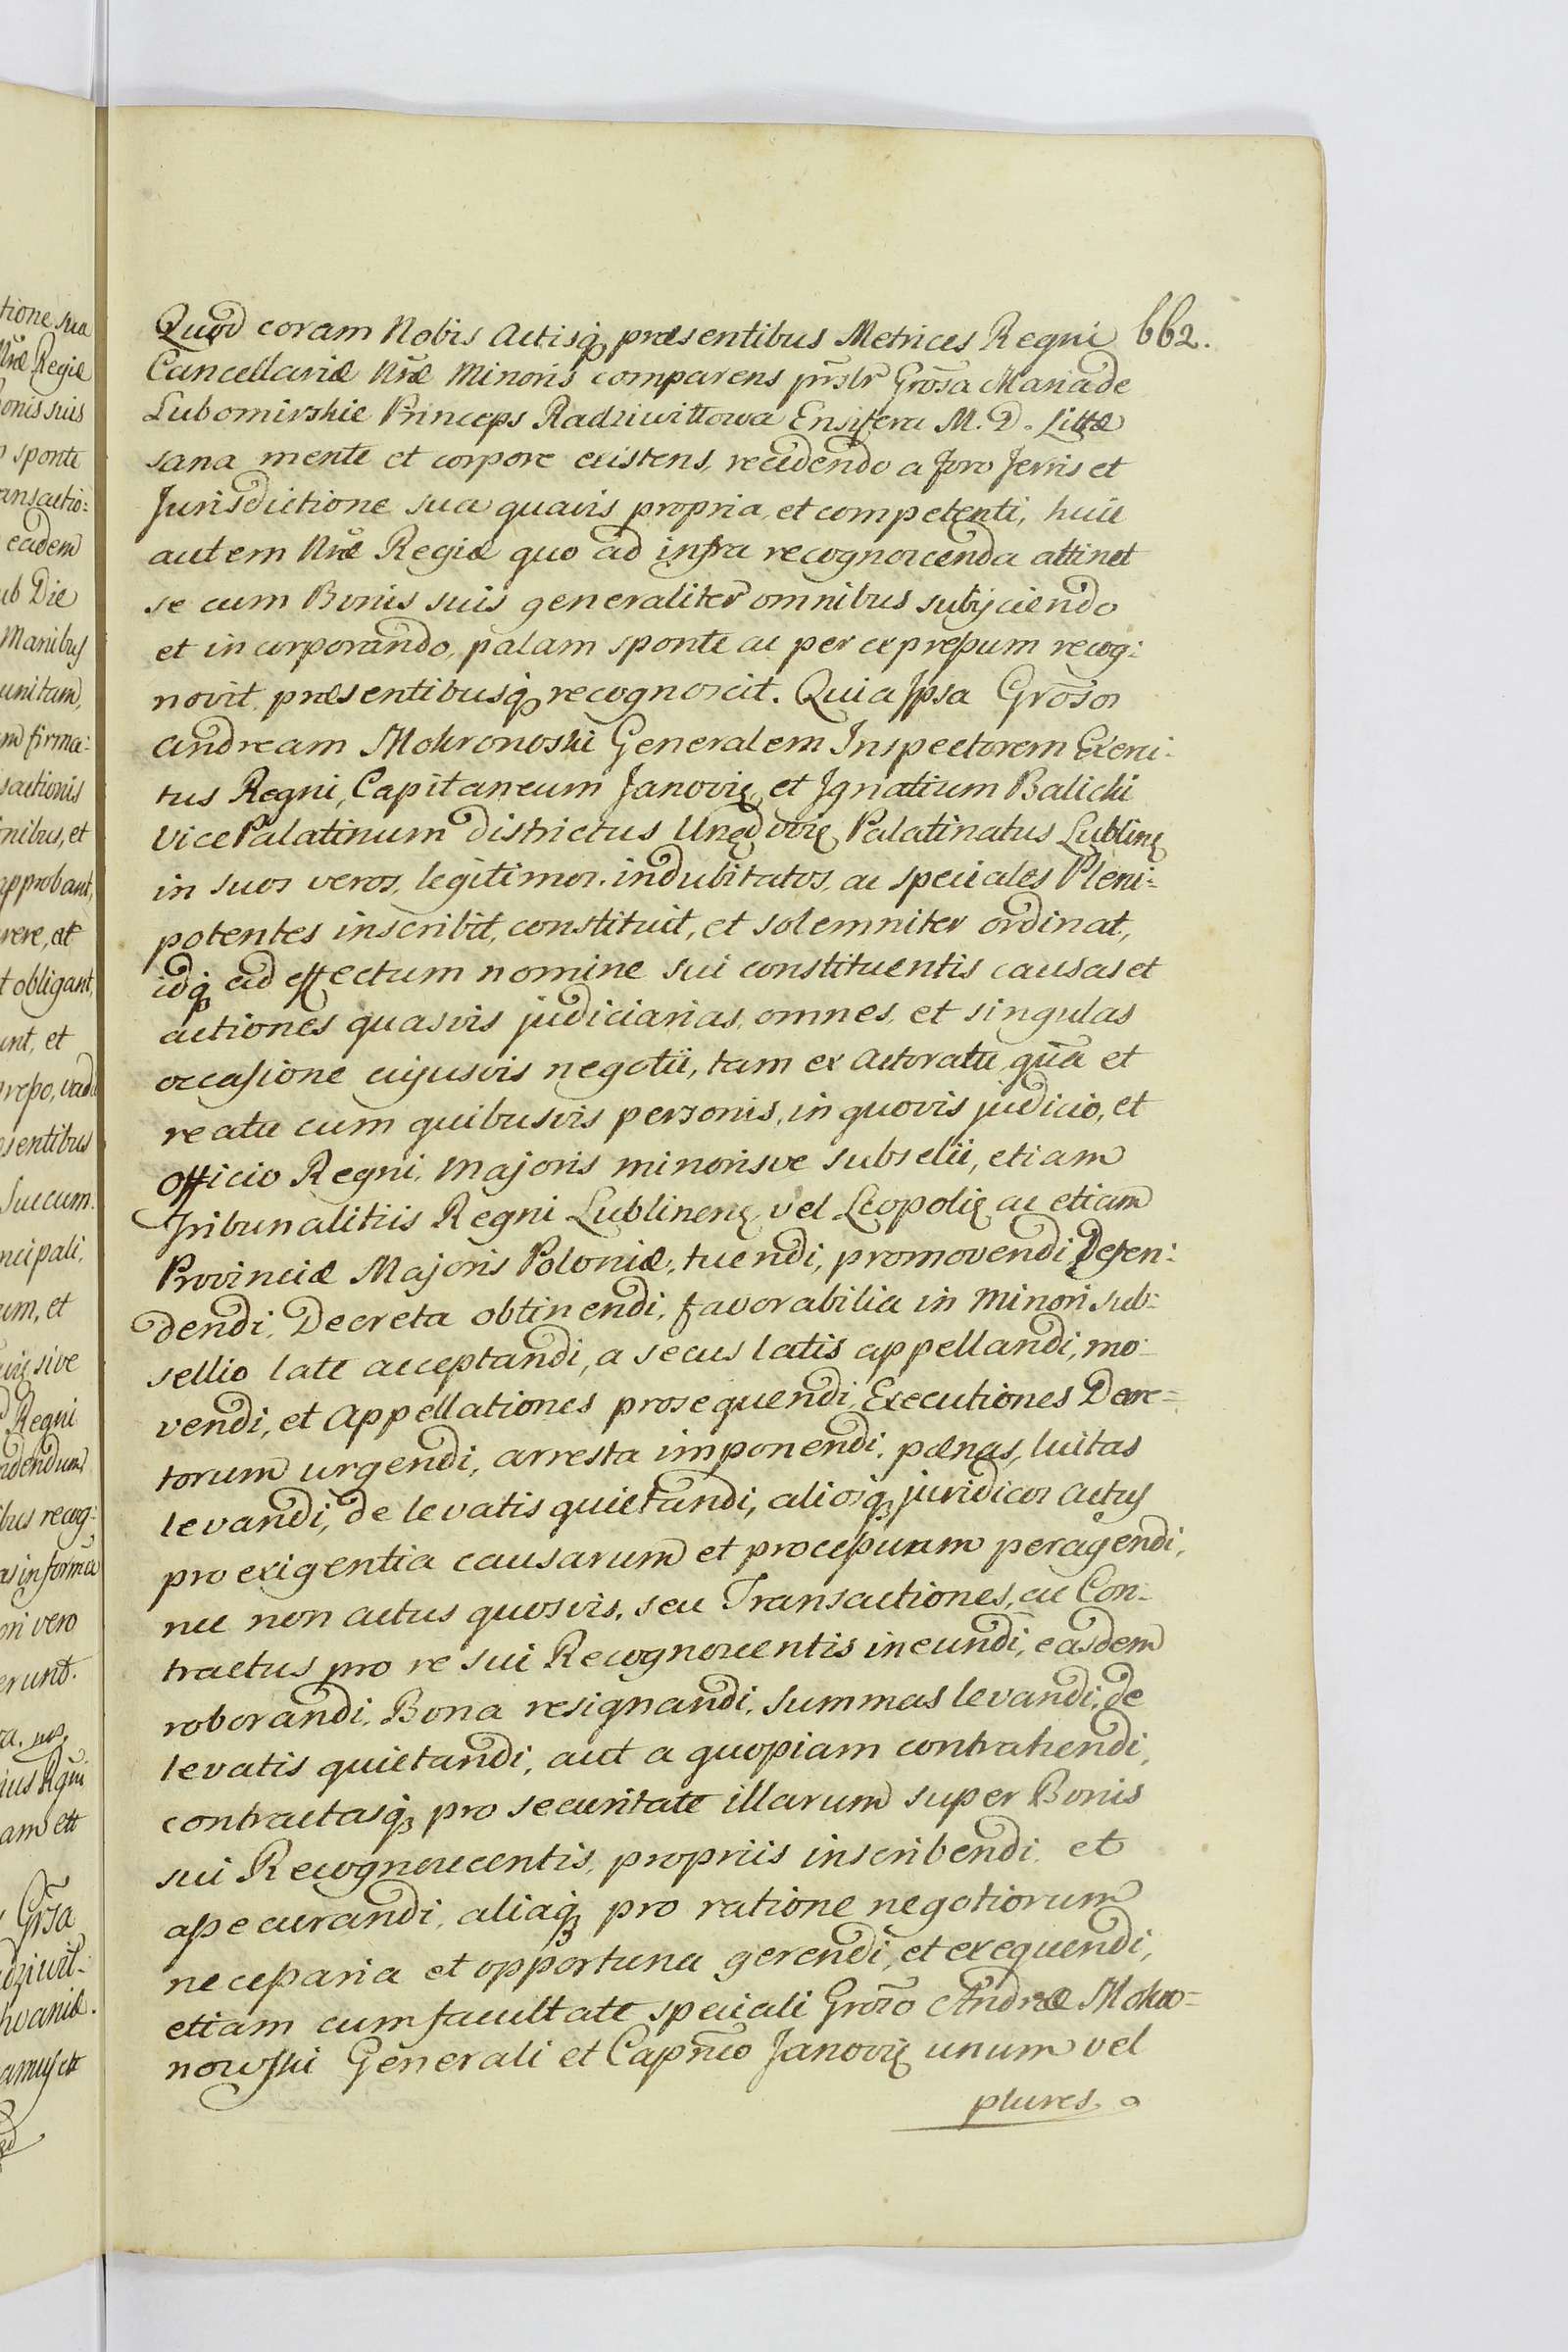 662.
Quod coram Nobis Actisq; præsentibus Metrices Regni
Cancellariæ Nr̃æ Minoris comparens pñsłr Gros̃a Maria de
Lubomirskie Princeps Radziwiłłowa Ensifera M. D. Littæ
sana mente et corpore existens, recedendo a foro Terris et
Jurisdictione sua quavis propria, et competenti, huic
autem Nr̃æ Regiæ quo ad infra recognoscenda attinet
se cum Bonis suis generaliter omnibus subijciendo
et incorporando, palam sponte ac per expressum recog:
novit, præsentibusq; recognoscit. Quia Ipsa Gros̃os
Andream Mokronoski Generalem Inspectorem Exerci:
tus Regni, Capitaneum Janovię, et Ignatium Balicki
Vice Palatinum districtus Uręd ovię Palatinatus Lublinę
in suos veros, legitimos, indubitatos, ac speciales Pleni:
potentes inscribit, constituit, et solemniter ordinat,
idq; ad effectum nomine sui constituentis causas et
actiones quasvis judiciarias, omnes, et singulas
occasione cujusvis negotii, tam ex Actoratu, quã et
reatu cum quibusvis personis, in quovis judicio, et
officio Regni, Majoris minorisve subselii, etiam
Tribunalitiis Regni Lublinenę vel Leopolię ac etiam
Provinciæ Majoris Poloniæ, tuendi, promovendi, Defen:
dendi, Decreta obtinendi, favorabilia in Minori sub:
sellio late acceptandi, a secus latis appellandi, mo:
vendi, et Appellationes prosequendi, Executiones Decre=
torum urgendi, arresta imponendi, pænas, luitas
levandi, de levatis quietandi, aliosq; juridicos Actus
pro exigentia causarum et processuum peragendi,
nec non actus quosvis, seu Transactiones, ac Con:
tractus pro re sui Recognoscentis ineundi, easdem
roborandi, Bona resignandi, Summas levandi, de
levatis quietandi, aut a quopiam contrahendi,
contractasq; pro securitate illarum super Bonis
sui Recognoscentis, propriis inscribendi et
assecurandi, aliaq; pro ratione negotiorum
necessaria et opportuna gerendi, et exequendi,
etiam cum facultate speciali Gros̃o Andreæ Mokro=
nowski Generali et Capñeo Janovię unum vel
plures.